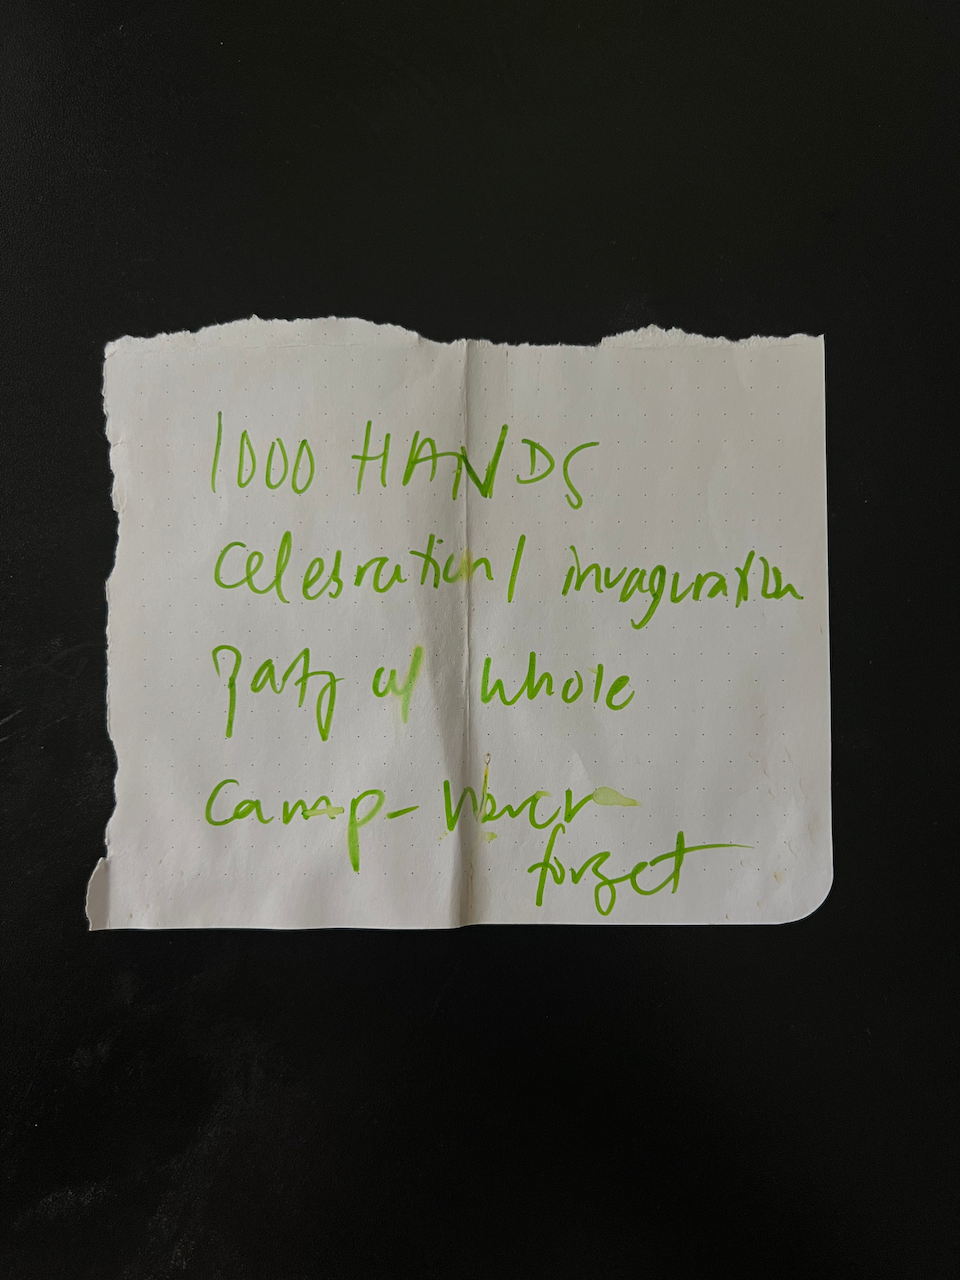 1000 HANDS
Celebration / invaguration
Party w/ whole
Camp - Never
forget